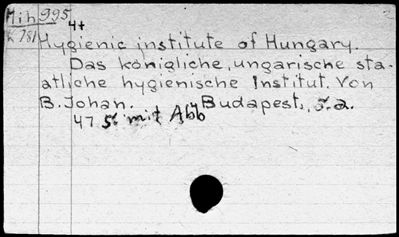 Mih 995
4+
K 781 Hygienic institute of Hungary.
Das königliche, ungarische sta-
atliche hygienische Institut. Von
B. Johan. Budapest, s.a.
47 S. mit Abb